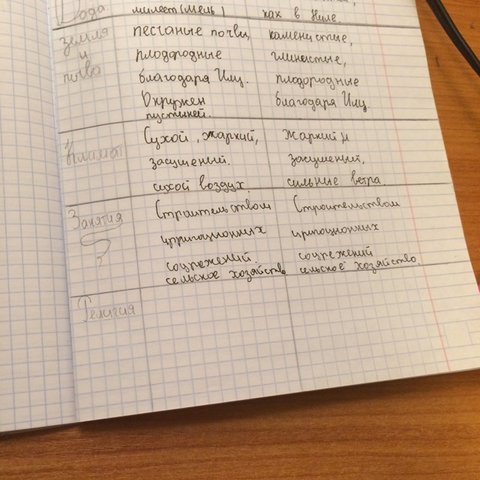 Вода милеет (мель) как в Ниле
земля и почва песчаные почвы, каменистые,
плодородные глинистые,
благодаря Илу. плодородные
Окружен благодаря Илу.
пустыней.
Климат Сухой, жаркий, Жаркий и
засушенный. засушенный,
сухой воздух. сильные ветра.
Занятия Строительством Строительством
ирригационных ирригационных
? сооружений сооружений
сельское хозяйств сельское хозяйство
Религия